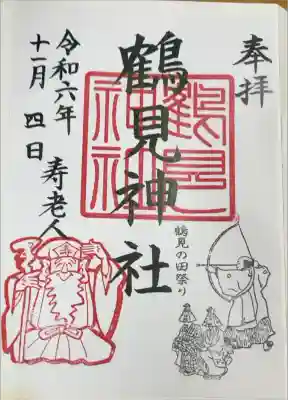 奉拝
鶴見神社
鶴見神社
鶴見の田祭り
寿老人
令和六年
十一月四日